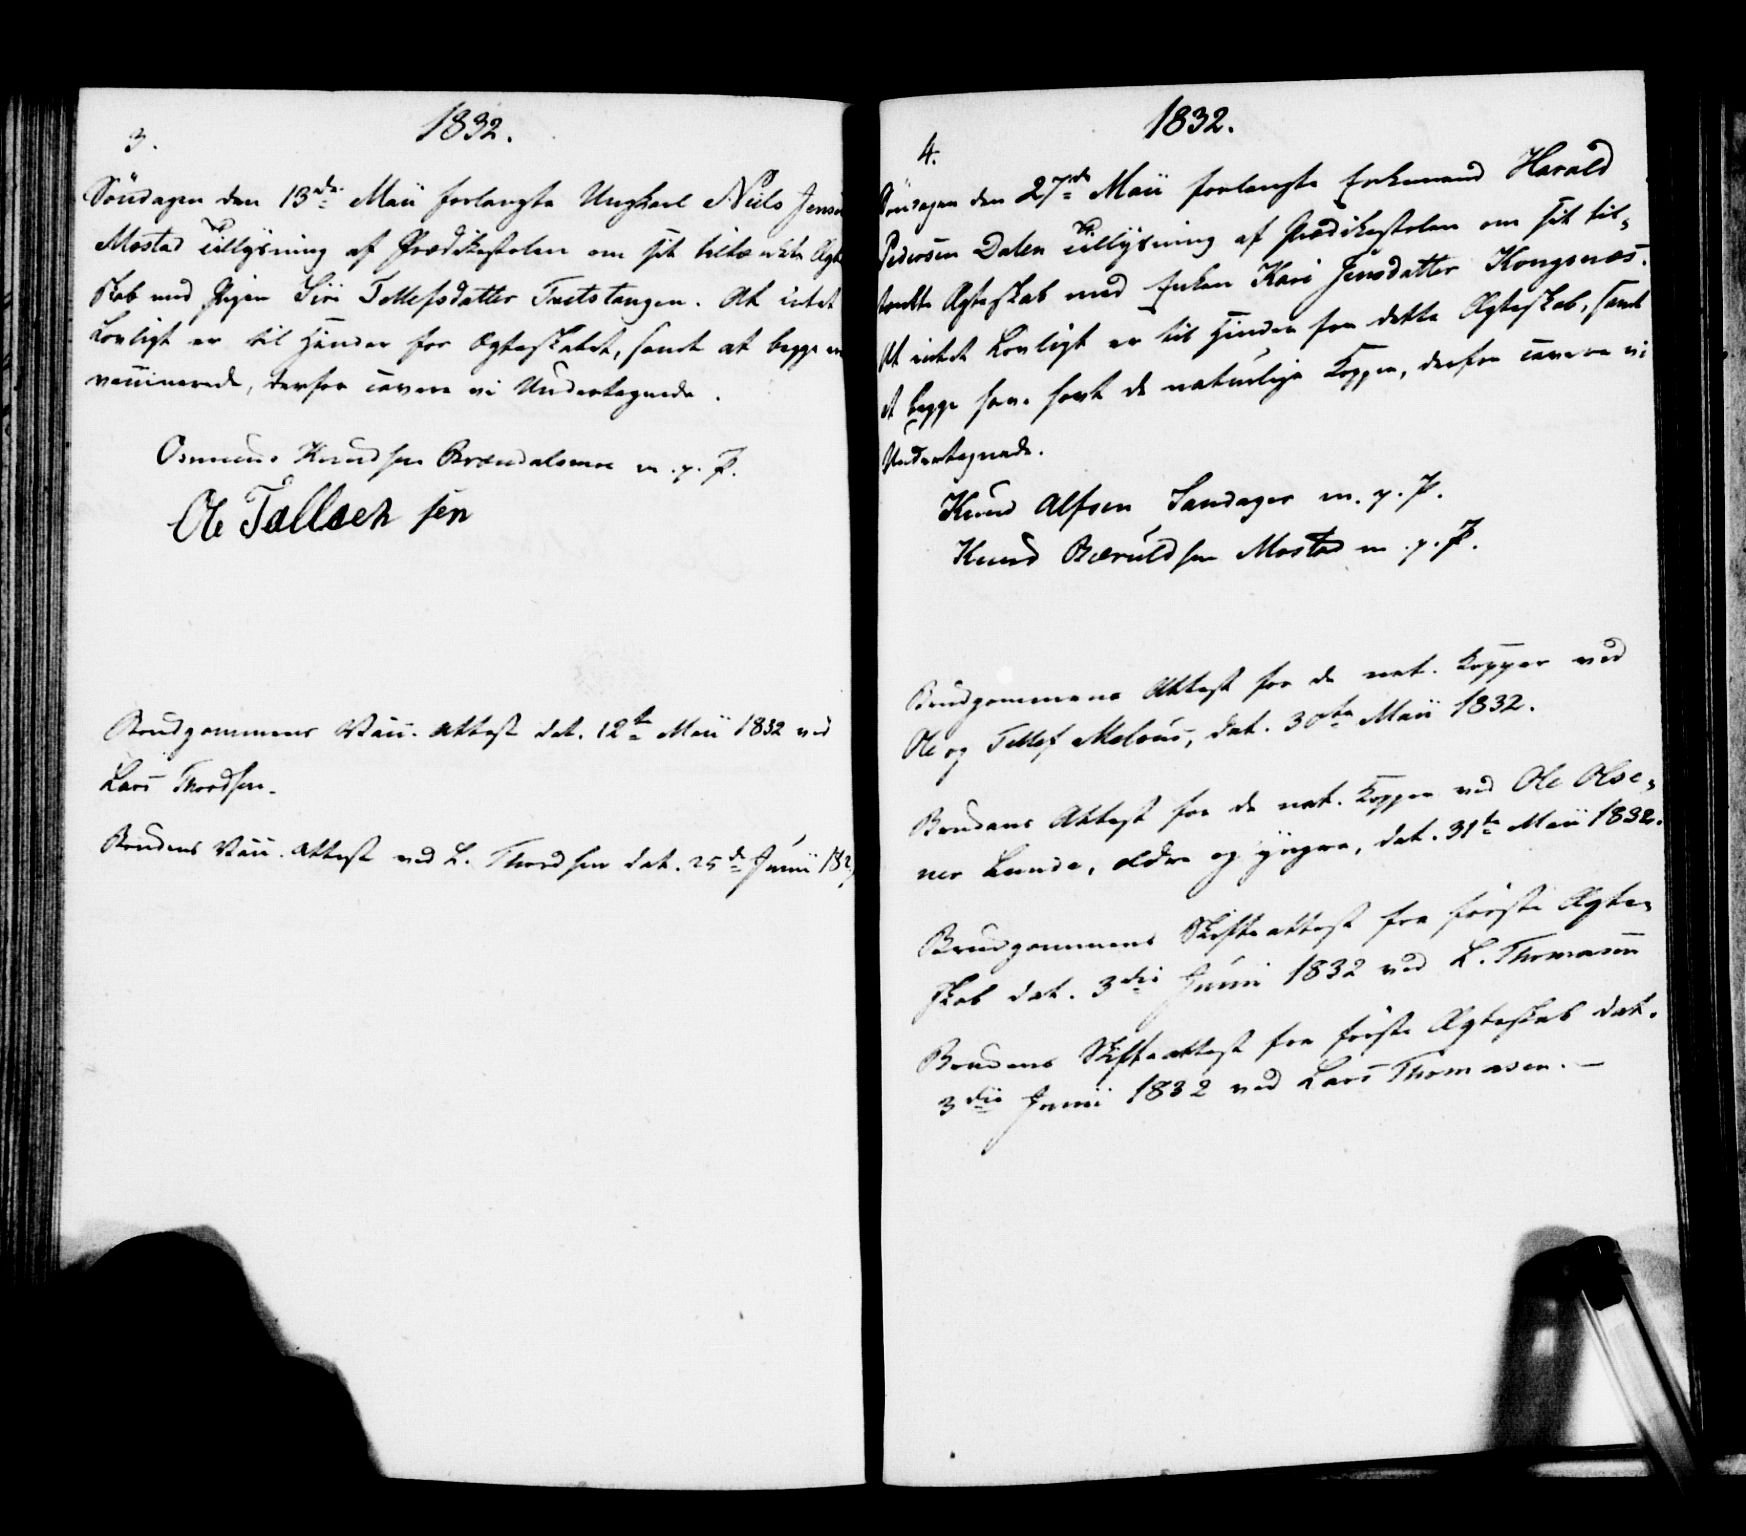 1832.
3.
Söndagen den 13de Maii forlangte Ungkarl Niels Jenss
Mostad Tillysning af Prædikestolen om sit tiltænkte Ægte
skab med Pigen Siri Tellefsdatter Tveitstangen. At intet
Lovligt er til Hinder for Ægteskabet, samt at begge ere
vaccinerede, derfor cavere vi Undertegnede.
Osmund Knudsen Brændalsmoe m. p. P.
Ole Tallach sen
Brudgommens Vacc. attest dat. 12te Maii 1832 ved
Lars Thordsen.
Brudens Vacc. attest ved L. Thordsen dat. 25de Junii 182
1832.
4.
Söndagen den 27de Maii forlangte Enkemand Harald
Pedersen Dalen Tillysning af Prædikestolen om sit til-
tænkte Ægteskab med Enken Kari Jensdatter Kongsnæs.
At intet Lovligt er til Hinder for dette Ægteskab, samt
at begge have havt de naturlige Kopper, derfor cavere vi
Undertegnede.
Knud Alfsen Sandager m. p. P.
Knud Bæruldsen Mostad m. p. P.
Brudgommens Attest for de nat. Kopper ved
Ole og Tellef Melaas, dat. 30te Maii 1832.
Brudens Attest for de nat. Kopper ved Ole Olse-
ner Lunde, ældre og yngre, dat. 31te Maii 1832.
Brudgommens Skifteattest fra förste Ægte-
skab dat. 3die Junii 1832 ved L. Thomasen
Brudens Skifteattest fra förste Ægteskab dat.
3die Junii 1832 ved Lars Thomasen. —